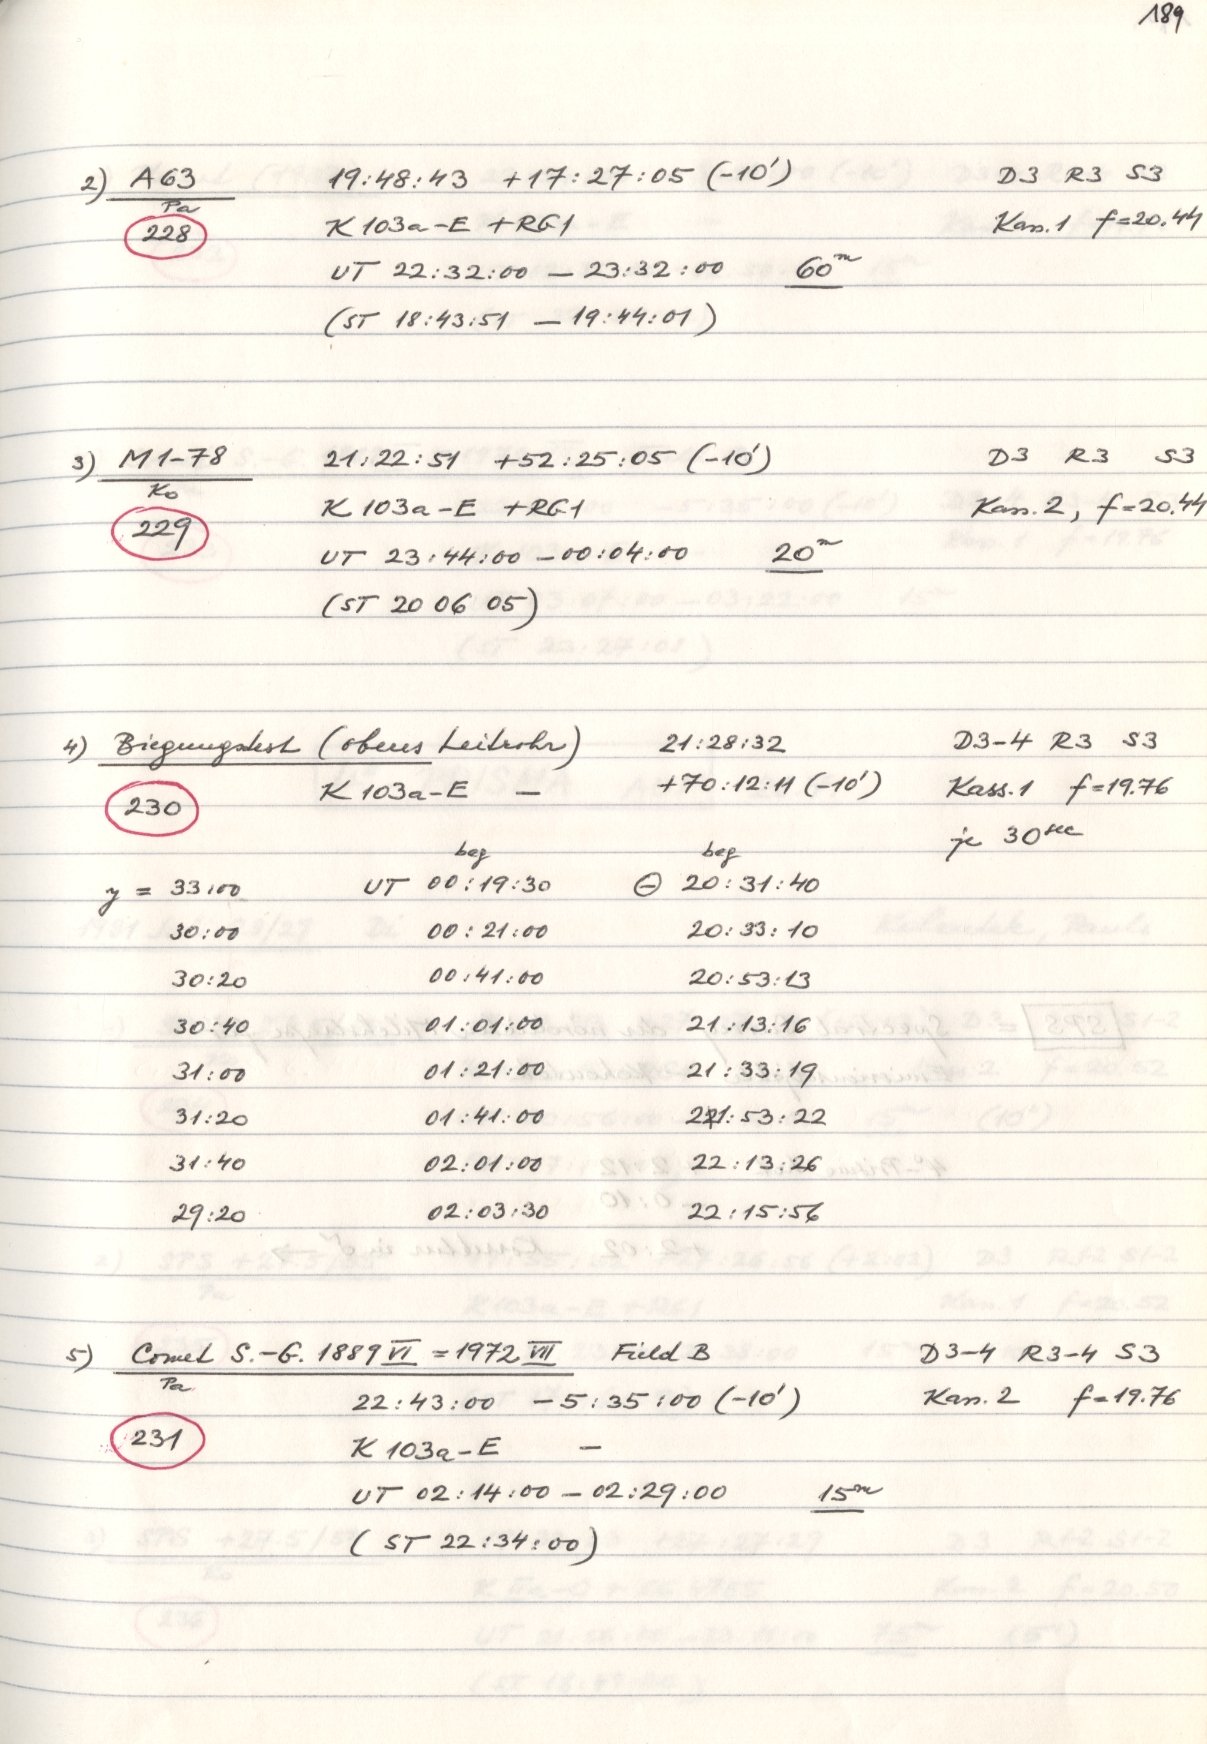 189
2) A63 19:48:43 +17:27:05 (-10') D3 R3 S3
Pa K 103a-E +RG1 Kass.1 f=20.44
228
UT 22:32:00 — 23:32:00 60m
(ST 18:43:51 — 19:44:01)
3) M1-78 21:22:51 +52:25:05 (-10') D3 R3 S3
Ko K 103a-E +RG1 Kass.2, f=20.44
229
UT 23:44:00 — 00:04:00 20m
(ST 20 06 05)
4) Biegungstest (oberes Leitrohr) 21:28:32 D3-4 R3 S3
230 K 103a-E — +70:12:11 (-10') Kass.1 f=19.76
je 30sec
beg beg
y = 33:00 UT 00:19:30 ⊖ 20:31:40
30:00 00:21:00 20:33:10
30:20 00:41:00 20:53:13
30:40 01:01:00 21:13:16
31:00 01:21:00 21:33:19
31:20 01:41:00 21:53:22
31:40 02:01:00 22:13:26
29:20 02:03:30 22:15:56
5) Comet S.-G. 1889 VI = 1972 VII Field B D3-4 R3-4 S3
Pa 22:43:00 -5:35:00 (-10') Kass.2 f=19.76
231 K 103a-E —
UT 02:14:00 — 02:29:00 15m
(ST 22:34:00)